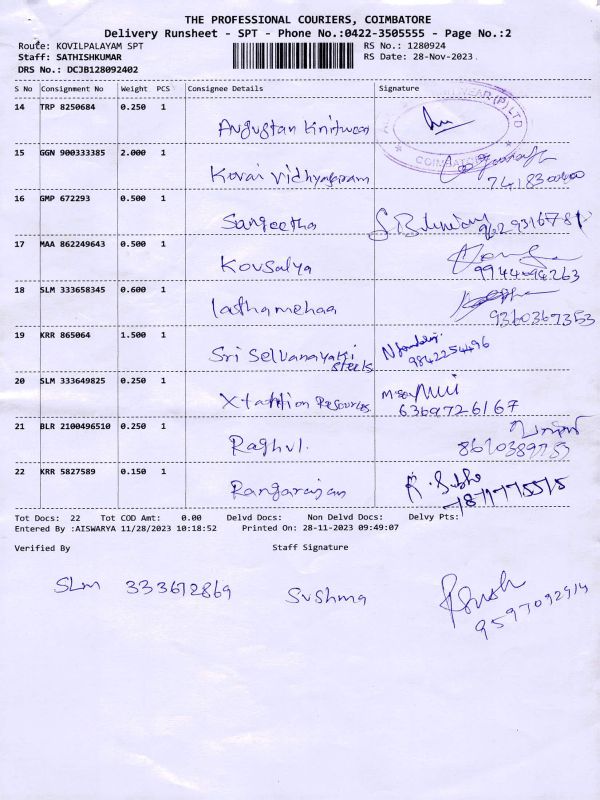 THE PROFESSIONAL COURIERS, COIMBATORE
Delivery Runsheet - SPT - Phone No.:0422-3505555 - Page No.:2
Route: KOVILPALAYAM SPT RS No.: 1280924
Staff: SATHISHKUMAR RS Date: 28-Nov-2023
DRS No.: DCJB128092402
S No Consignment No Weight PCS Consignee Details Signature
14 TRP 8250684 0.250 1
Augustan Knitwear
COIMBATORE
15 GGN 900333385 2.000 1
Kovai Vidhyashram
16 GMP 672293 0.500 1
Sangeetha
17 MAA 862249643 0.500 1
Kovsalya
9944098263
18 SLM 333658345 0.600 1
lathamehaa
9360367353
19 KRR 865064 1.500 1
Sri Selvanayaki
steels
9842254496
20 SLM 333649825 0.250 1
Xtantion Resources
6369726167
21 BLR 2100496510 0.250 1
Raghul.
22 KRR 5827589 0.150 1
Rangarajan
Tot Docs: 22 Tot COD Amt: 0.00 Delvd Docs: Non Delvd Docs: Delvy Pts:
Entered By :AISWARYA 11/28/2023 10:18:52 Printed On: 28-11-2023 09:49:07
Verified By Staff Signature
SLM 333672869 Sushma
9597092914